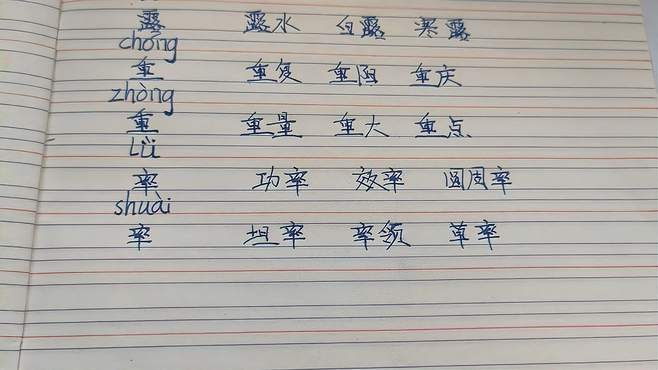 露 露水 白露 寒露
chóng
重 重复 重阻 重庆
zhòng
重 重量 重大 重点
lǜ
率 功率 效率 圆周率
shuài
率 坦率 率领 草率